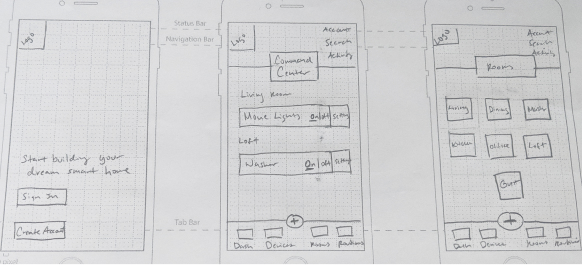 Status Bar
Navigation Bar
Tab Bar
Logo
Start building your
dream smart home
Sign In
Create Account
Logo
Account
Search
Activity
Command
Center
Living Room
Movie Lights On/off
Loft
Washer On/off
+
Dash Devices Rooms Routines
Logo
Account
Search
Activity
Rooms
Living Dining Master
Kitchen Office Loft
+
Dash Devices Rooms Routines